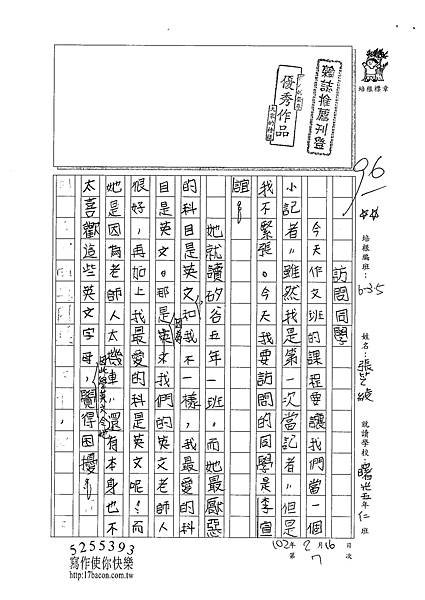 培根標章
雜誌推薦刊登
優秀作品
96
培根編班：6-3.5
姓名：張
就讀學校：曙光五年仁班
訪問同學
今天作文班的課程要讓我們當一個
小記者，雖然我是第一次當記者，但是
我不緊張。今天我要訪問的同學是李宣
誼。
她就讀矽谷五年一班，而她最厭惡
的科目是英文和我不一樣，我最愛的科
目是英文。那是因為我們的英文老師人
很好，再加上我最愛的科是英文呢！而
她是因為老師人太機車，還有本身也不
太喜歡這些英文字母，覺得困擾。
102年2月16日
第7次
5255393
寫作使你快樂
http://17bacon.com.tw